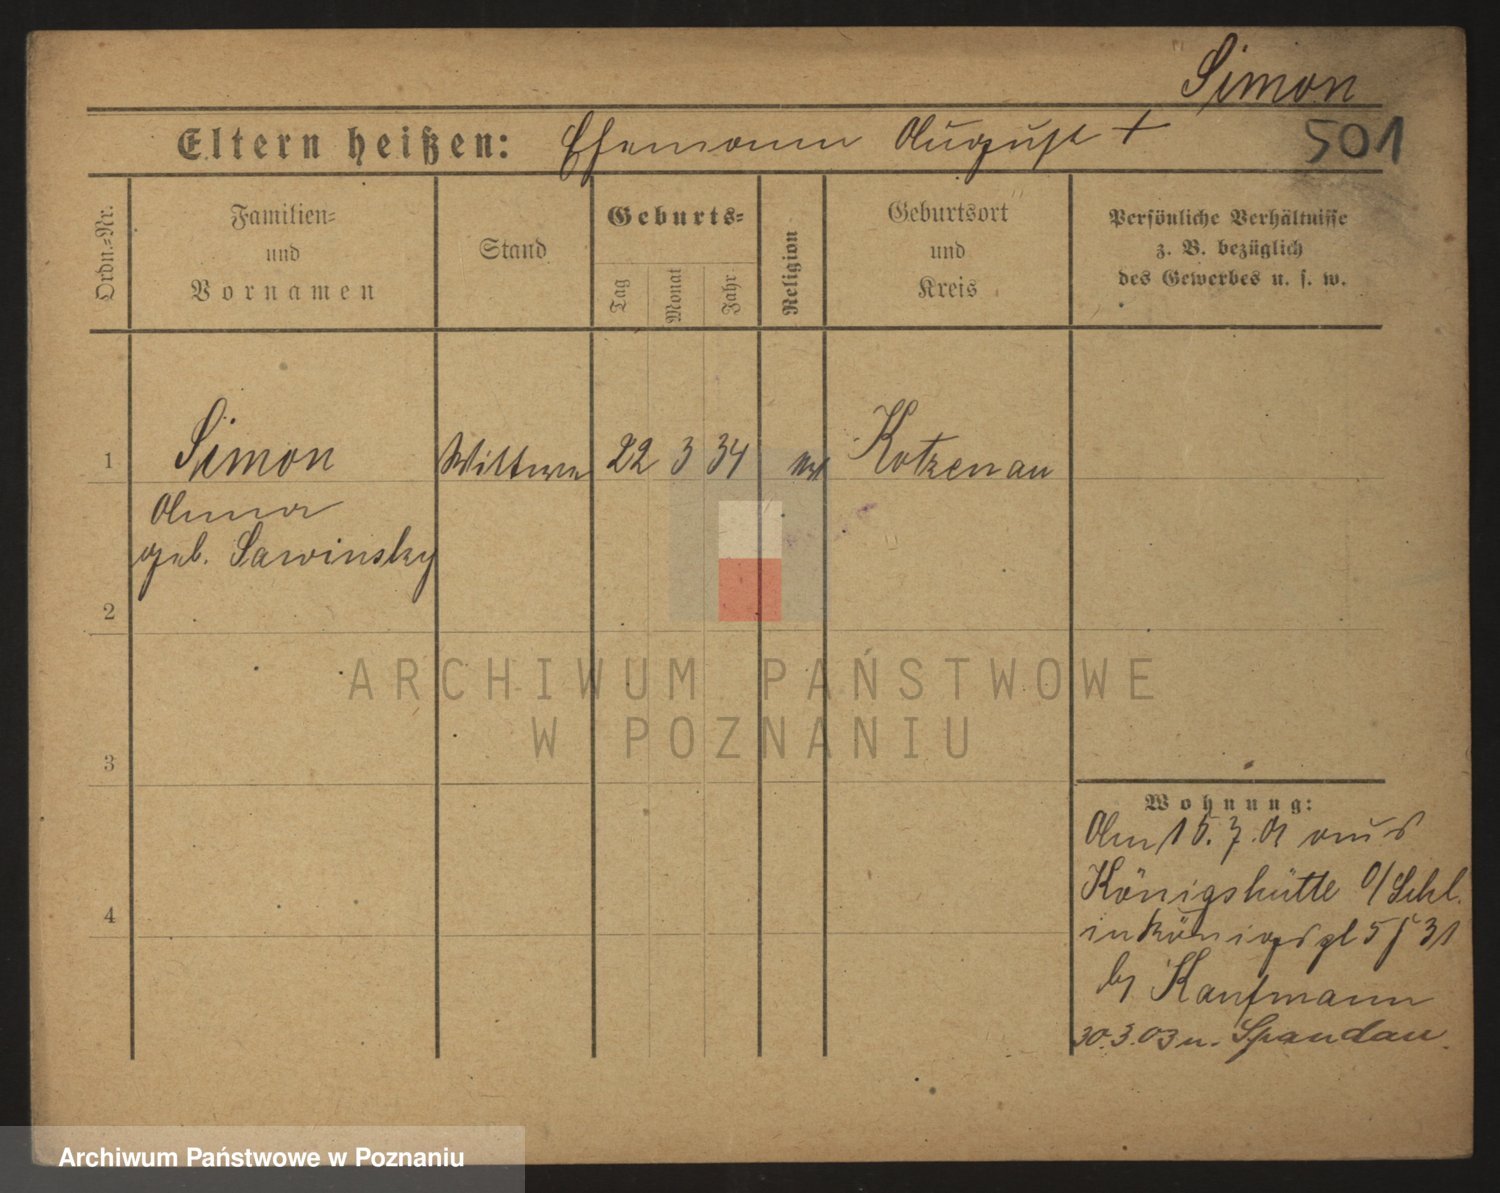 Simon
501
Eltern heißen: Ehemann August +
Ordn.-Nr.
Familien-
und
Vornamen
Stand
Geburts-
Tag
Monat
Jahr
Religion
Geburtsort
und
Kreis
Persönliche Verhältnisse
z. B. bezüglich
des Gewerbes u. s. w.
1 Simon Wittwe 22 3 34 Kotzenau
Anna
geb. Sawinsky
2
3
4
Wohnung:
Am 15.7.01 aus
Königshütte O/Schl.
in Königspl 5 31
by Kaufmann
30.3.03 n. Spandau.
ARCHIWUM PAŃSTWOWE
W POZNANIU
Archiwum Państwowe w Poznaniu